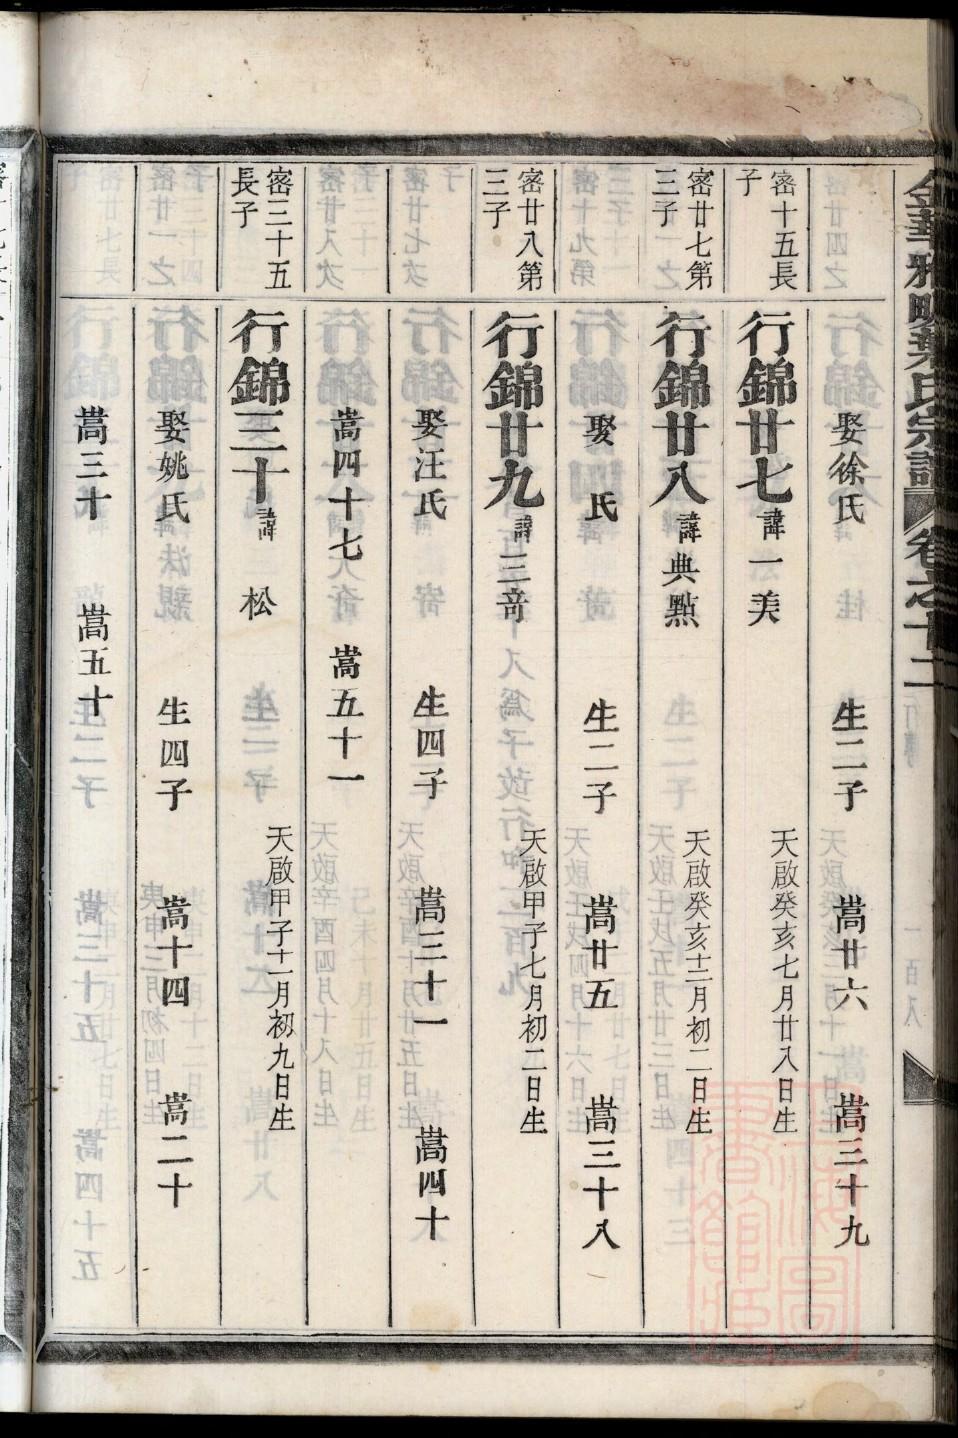 金華雅畈葉氏宗譜 卷之十二
娶徐氏 生二子 嵩廿六 嵩三十九
密十五長子
行錦廿七 諱一美 天啟癸亥七月廿八日生
密廿七第三子
行錦廿八 諱典點 天啟癸亥十二月初二日生
娶 氏 生二子 嵩廿五 嵩三十八
密廿八第三子
行錦廿九 諱三奇 天啟甲子七月初二日生
娶汪氏 生四子 嵩三十一 嵩四十
嵩四十七 嵩五十一
密三十五長子
行錦三十 諱松 天啟甲子十一月初九日生
娶姚氏 生四子 嵩十四 嵩二十
嵩三十 嵩五十